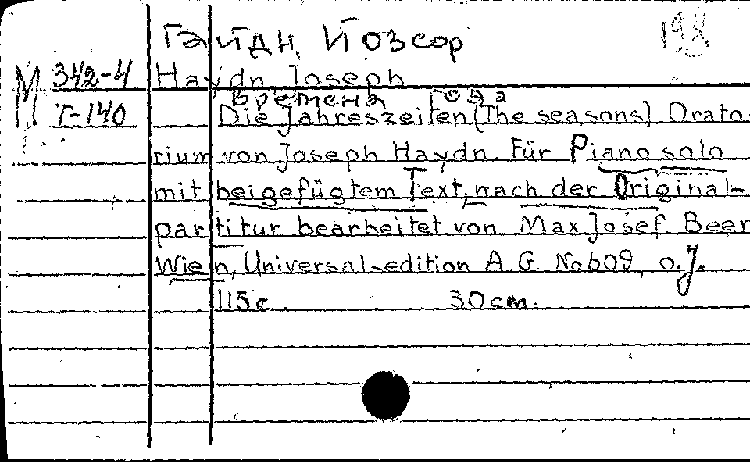 Гайдн, Йозеф
М 342-4 Haydn, Joseph
Времена года
Г-140 Die Jahreszeiten (The seasons) Orato-
rium von Joseph Haydn. Für Piano solo
mit beigefügtem Text, nach der Original-
partitur bearbeitet von Max Josef Beer
Wien, Universal-edition A.G. No 609, o.J.
115c. 30cm.